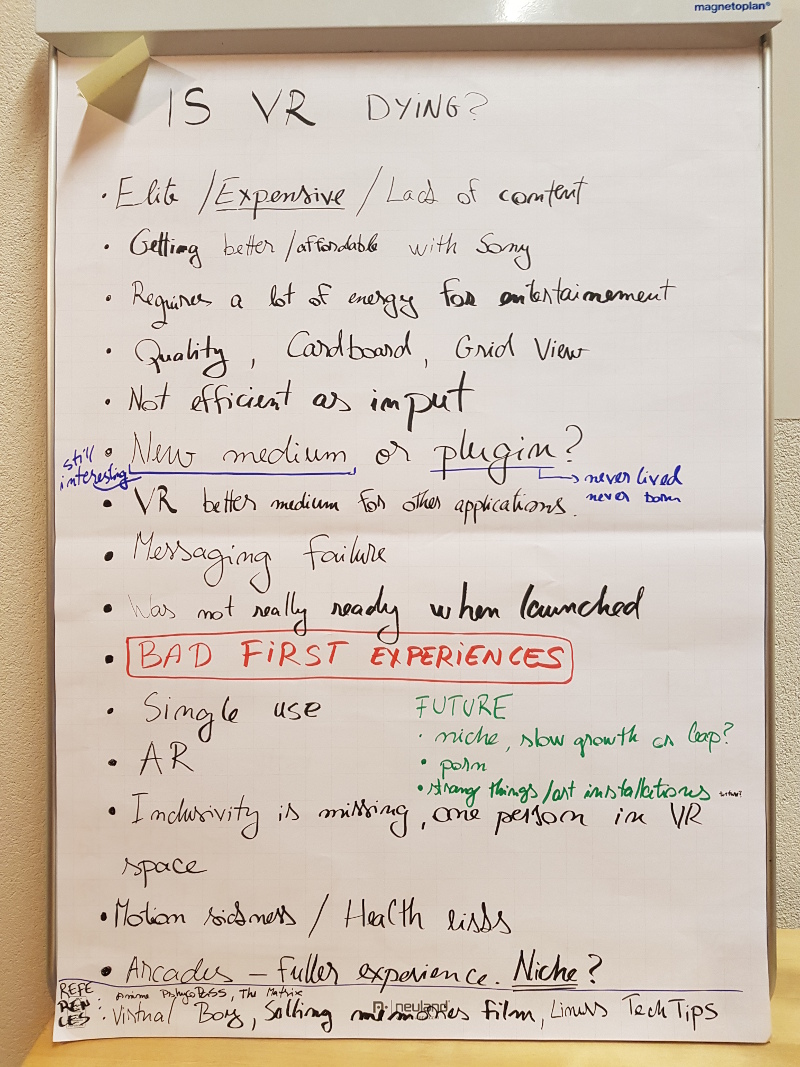 magnetoplan®
IS VR DYING?
• Elite / Expensive / Lack of content
• Getting better / affordable with Sony
• Requires a lot of energy for entertainement
• Quality, Cardboard, Grid View
• Not efficient as input
still interesting
• New medium or plugin?
never lived
never born
• VR better medium for other applications.
• Messaging failure
• Was not really ready when launched
• BAD FIRST EXPERIENCES
• Single use
• AR
FUTURE
• niche, slow growth or leap?
• porn
• strang things / art installations
• Inclusivity is missing, one person in VR
space
• Motion sickness / Health risks
• Arcades – Fuller experience. Niche?
REFE
REN
CES:
Anime, The Matrix
Virtual Boy, Selling memories film, Linus Tech Tips
neuland